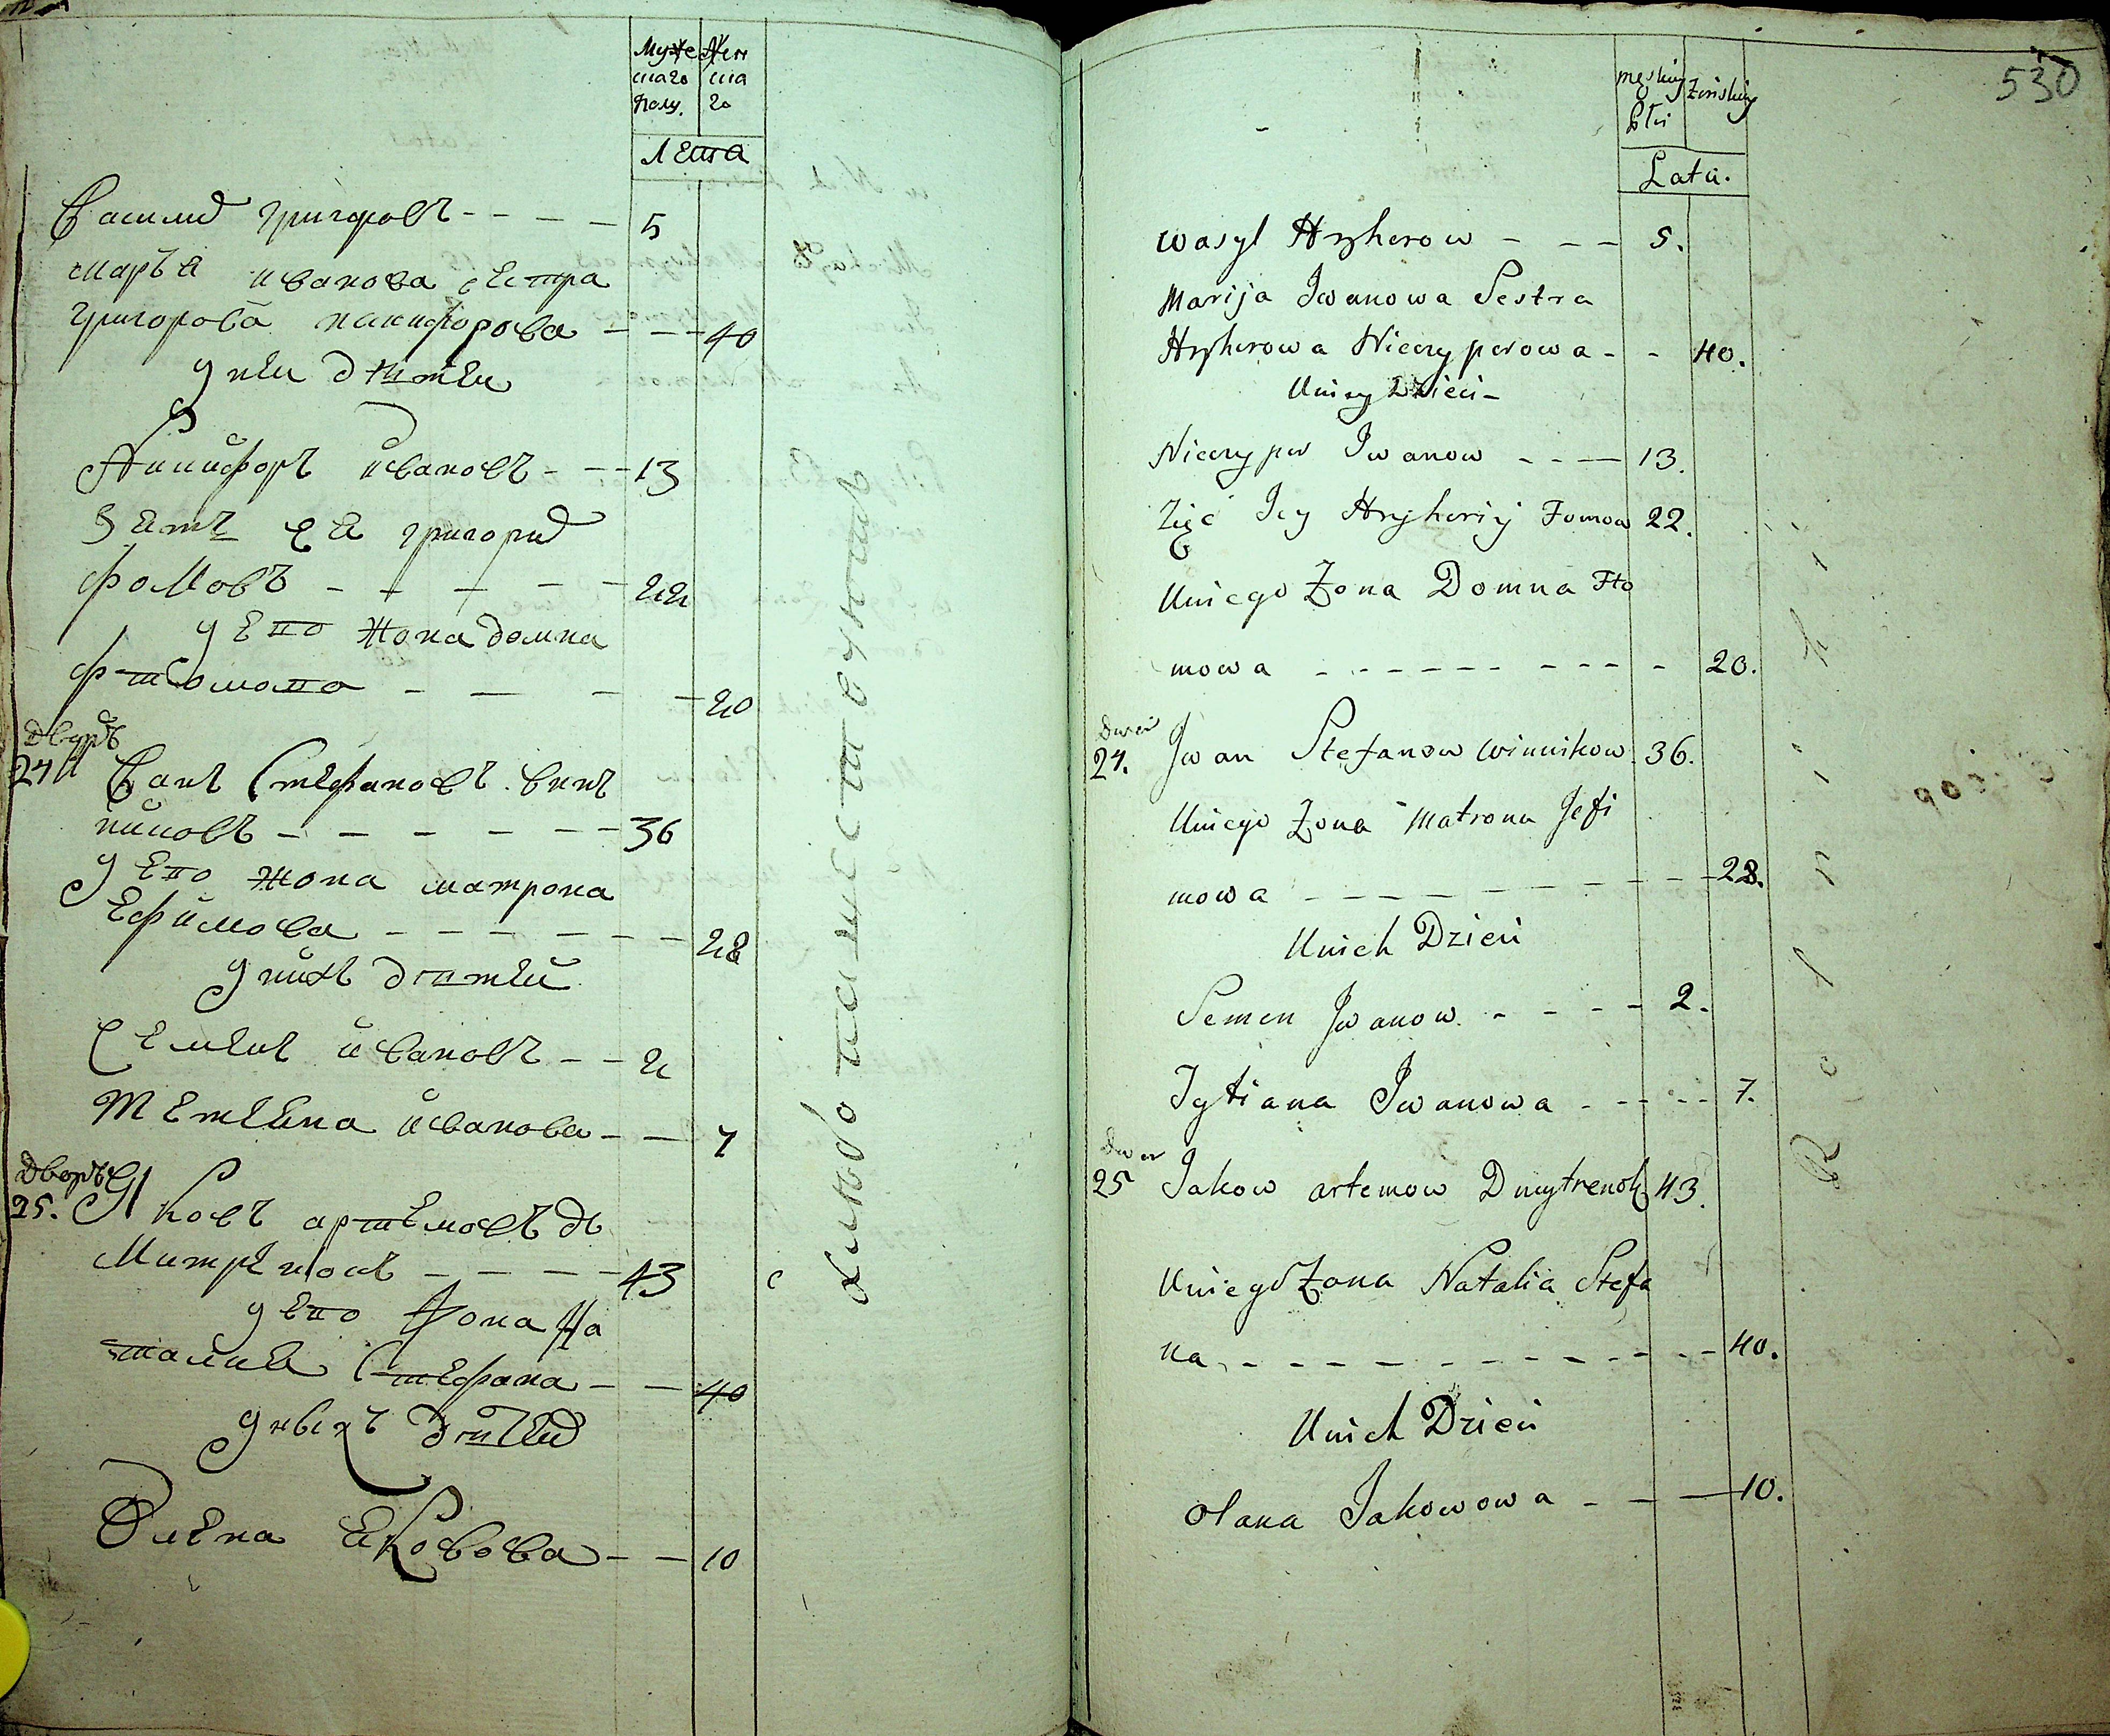 Мужескаго полу. Женскаго
Лета
Василий григоровъ - - - - 5
Марья иванова сестра
григорова никифорова - - - 40
у неи дети
Никифоръ ивановъ - - - 13
Зять ея григорий
фомовъ - - - - - 22
у его жона домна
фтомова - - - - 20
дворъ
24 Иванъ Стефановъ винъ
никовъ - - - - - - 36
у его жона матрона
Ефимова - - - - - - 28
у нихъ детей
Семенъ ивановъ - - 2
Тетяна иванова - - 7
дворъ
25. Яковъ артемовъ ды
митренокъ - - - - 43
у его жона На
талия Стефана - - 40
у нихъ детей
Олена Яковова - - 10
530
męskiey płci żeńskiey
Lata.
Wasyl Hryhorow - - - 5.
Marija Iwanowa Sestra
Hryhorowa Niczyperowa - - 40.
Uniey Dzieci -
Niczyper Iwanow - - - 13.
Zięć Iey Hryhoriy Fomow 22.
Uniego Żona Domna Fto
mowa - - - - - - - - - - 20.
Dwor
24. Iwan Stefanow Winnikow 36.
Uniego Żona Matrona Jefi
mowa - - - - - - - - - 28.
Unich Dzieci
Semen Iwanow. - - - - 2.
Tytiana Iwanowa - - - - - 7.
Dwor
25 Jakow artemow Dmytrenok 43.
Uniego Żona Natalia Stefa
na - - - - - - - - - - - 40.
Unich Dzieci
Olana Jakowowa - - - 10.